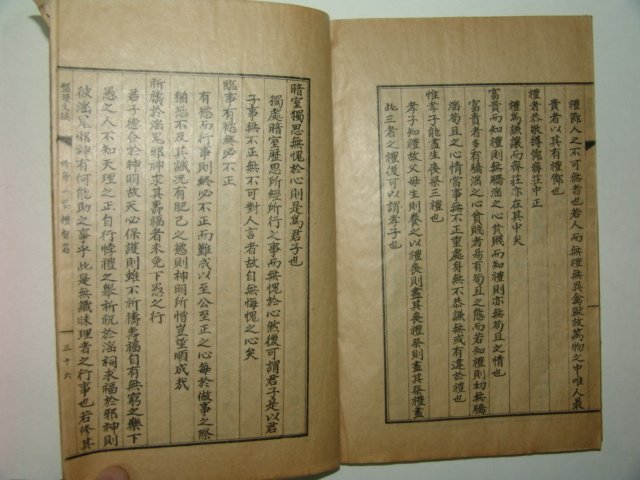 禮斷人之不可無者也若人而無禮無異禽獸故萬物之中唯人最
貴者以其有禮儀也
禮者恭敬撙節齊莊中正
禮爲謙讓而齊莊亦在其中矣
富貴而知禮則無驕滛之心貧賤而知禮則亦無苟且之情
富貴者多有驕滛之心貧賤者易有苟且之態而若知禮則初無驕
滛苟且之心情當事無不正重處身無不恭謙無或有違於禮也
惟孝子能盡生喪祭三禮也
孝子知禮故父母生則養之以禮喪則盡其喪禮祭則盡其祭禮盡
此三者之禮後可以謂孝子也
暗室獨思無愧於心則是爲君子也
獨處暗室歷思所經所行之事而無愧於心然後可謂君子是以君
子事無不正無不可對人言者故自無悔愧之心矣
臨事有慾終必不正
有慾而行事則終必不正而難成以至公至正之心每於做事之際
猶恐不及其誠況有肥己之慾則神明所憎豈望順成哉
祈禱於滛鬼邪神求其壽福者未免下愚之行
君子德合於神明故天必保護則雖不祈禱壽福自有無窮之樂下
愚之人不知天理之正自行悖禮之擧祈祝於滛祠求福於邪神則
彼滛鬼邪神有何能助之事乎此是無識昧理者之行事也若修其
三十六